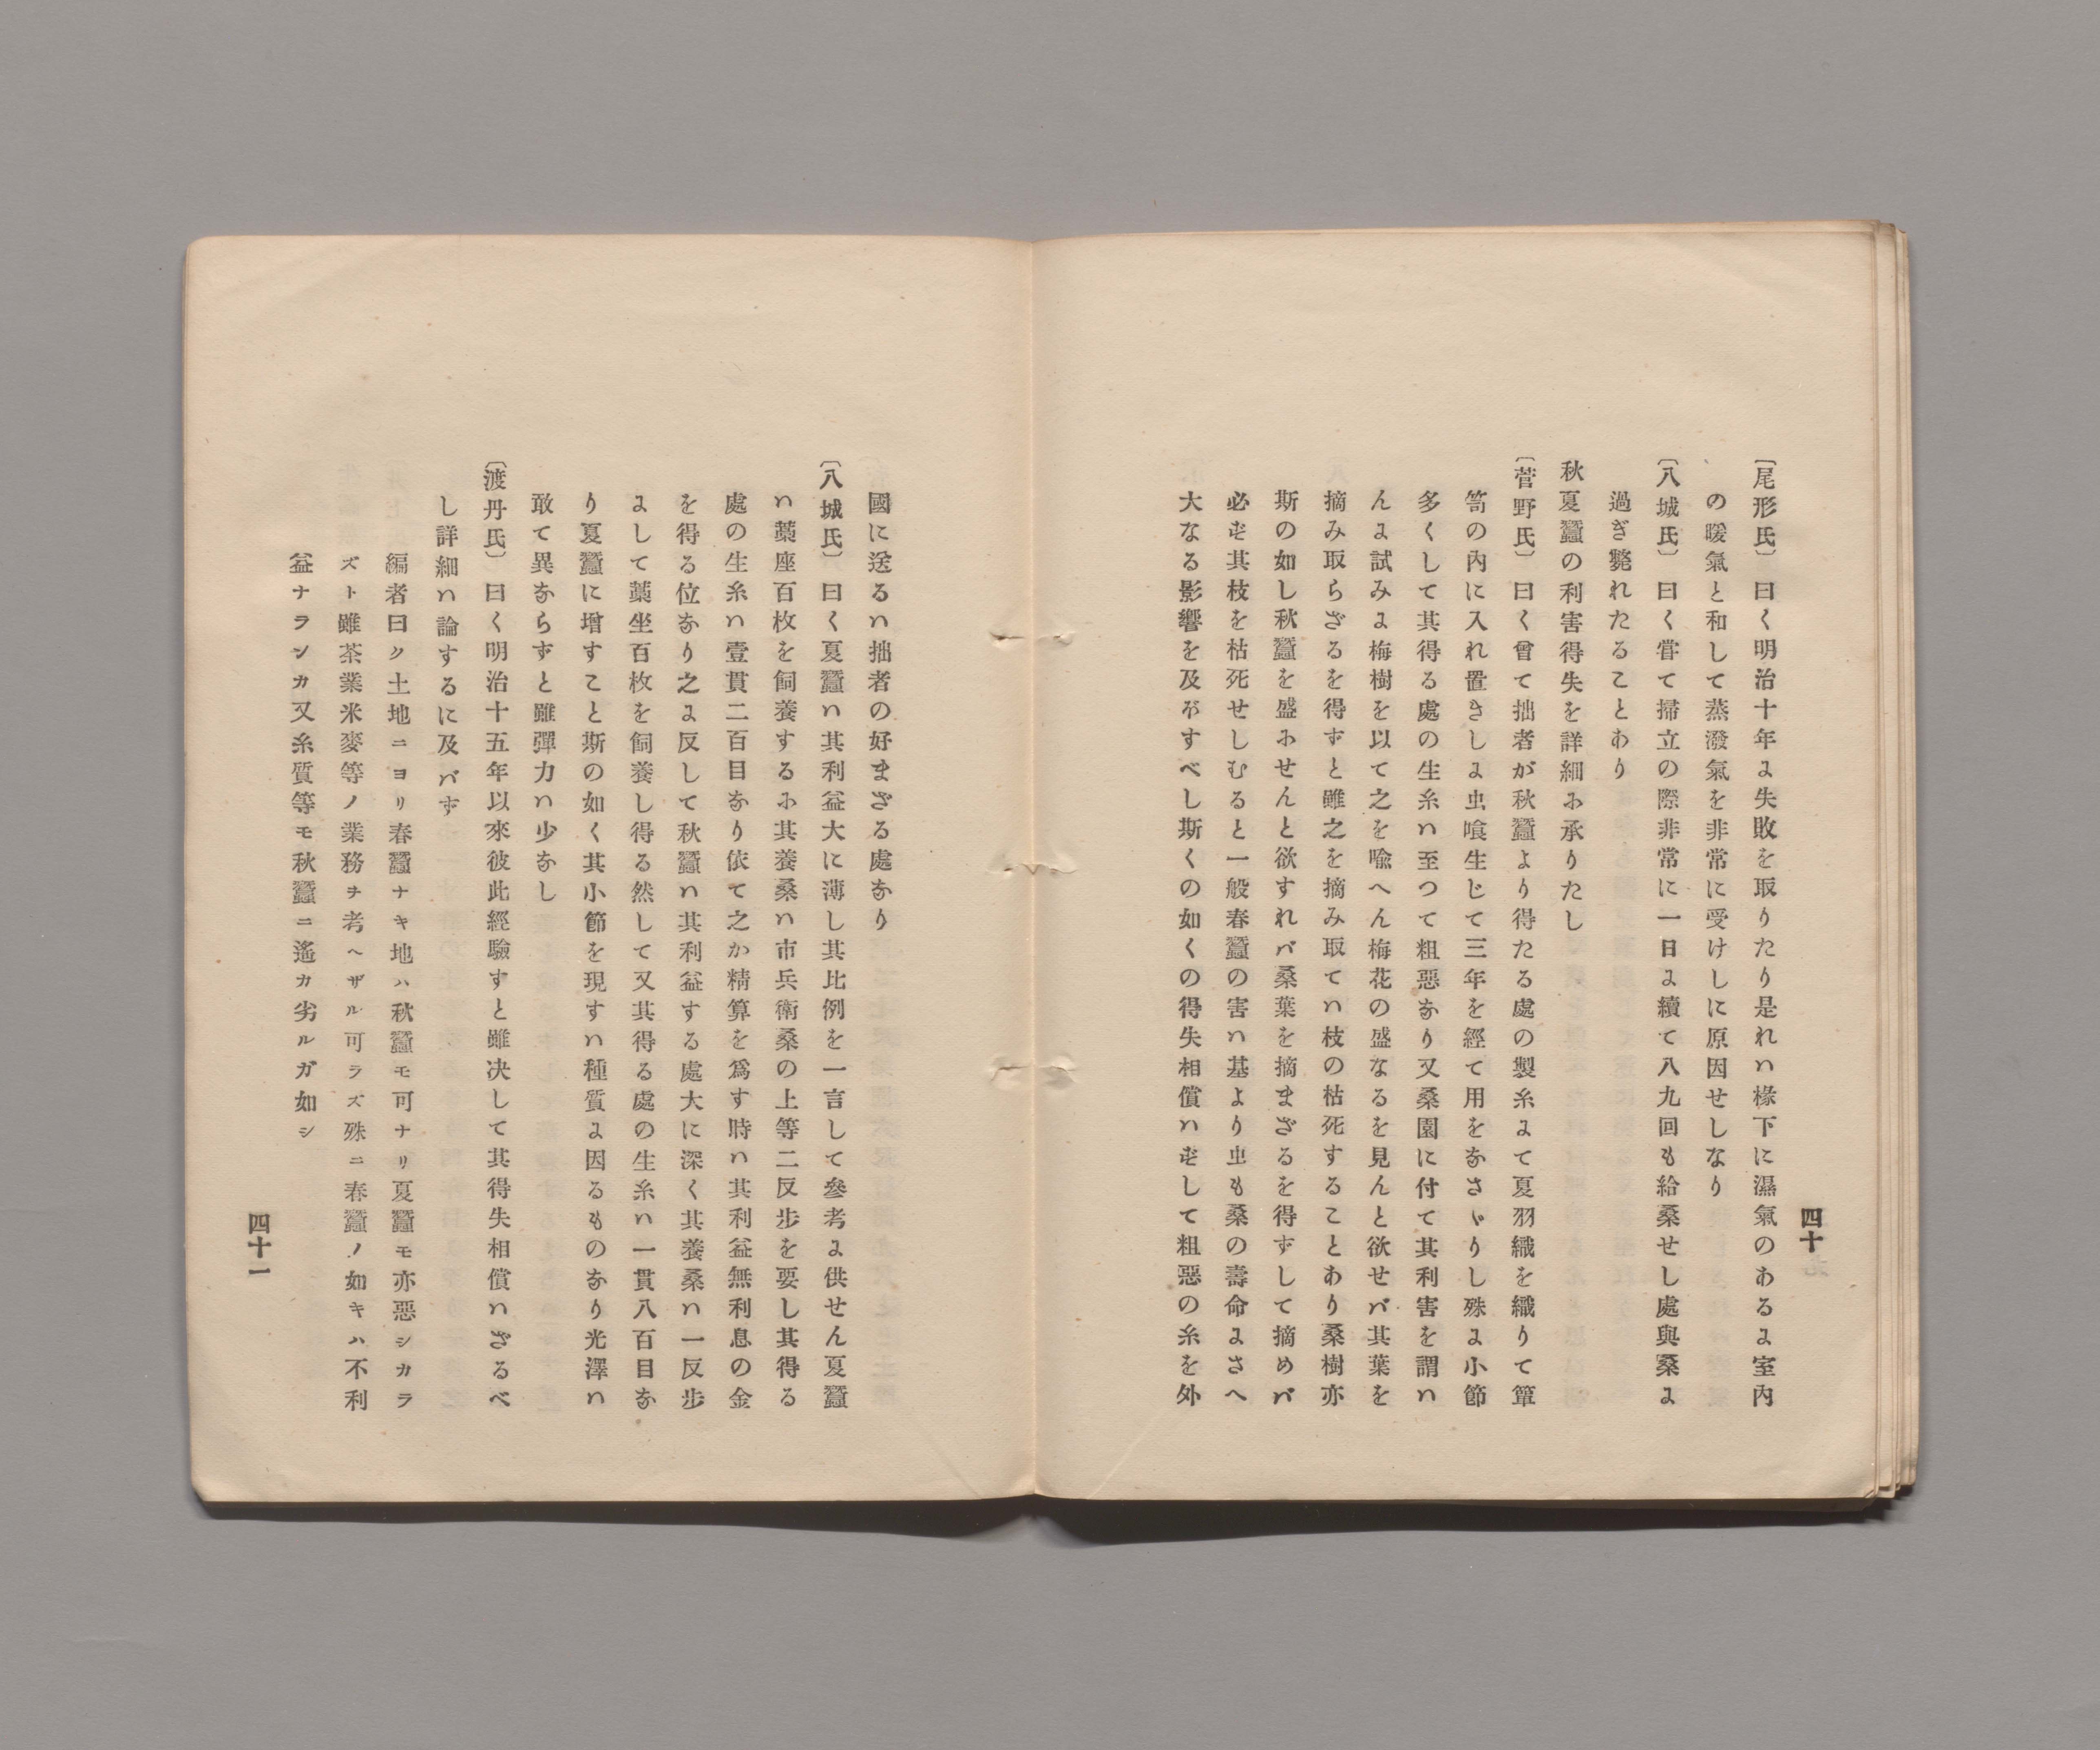 四十
〔尾形氏〕曰く明治十年に失敗を取りたり是れハ椽下に濕氣のあるに室内
の暖氣と和して蒸潑氣を非常に受けしに原因せしなり
〔八城氏〕曰く嘗て掃立の際非常に一日に續て八九回も給桑せし處與桑に
過ぎ斃れたることあり
秋夏蠶の利害得失を詳細に承りたし
〔菅野氏〕曰く曾て拙者が秋蠶より得たる處の製糸にて夏羽織を織りて簞
笥の內に入れ置きしに虫喰生じて三年を經て用をなさゝりし殊に小節
多くして其得る處の生糸ハ至つて粗惡なり又桑園に付て其利害を謂ハ
んに試みに梅樹を以て之を喩へん梅花の盛なるを見んと欲せバ其葉を
摘み取らざるを得ずと雖之を摘み取てハ枝の枯死することあり桑樹亦
斯の如し秋蠶を盛にせんと欲すれバ桑葉を摘まざるを得ずして摘めバ
必ず其枝を枯死せしむると一般春蠶の害ハ基より虫も桑の壽命にさへ
大なる影響を及ぼすべし斯くの如くの得失相償ハずして粗惡の糸を外
國に送るハ拙者の好まざる處なり
〔八城氏〕曰く夏蠶ハ其利益大に薄し其比例を一言して參考に供せん夏蠶
ハ藁座百枚を飼養するに其養桑ハ市兵衛桑の上等二反步を要し其得る
處の生糸ハ壹貫二百目なり依て之か精算を爲す時ハ其利益無利息の金
を得る位なり之に反して秋蠶ハ其利益する處大に深く其養桑ハ一反步
にして藁坐百枚を飼養し得る然して又其得る處の生糸ハ一貫八百目な
り夏蠶に增すこと斯の如く其小節を現すハ種質に因るものなり光澤ハ
敢て異ならずと雖彈力ハ少なし
〔渡丹氏〕曰く明治十五年以來彼此經驗すと雖決して其得失相償ハざるべ
し詳細ハ論するに及バず
編者曰ク土地ニヨリ春蠶ナキ地ハ秋蠶モ可ナリ夏蠶モ亦惡シカラ
ズト雖茶業米麥等ノ業務ヲ考ヘザル可ラズ殊ニ春蠶ノ如キハ不利
益ナランカ又糸質等モ秋蠶ニ遙カ劣ルガ如シ
四十一